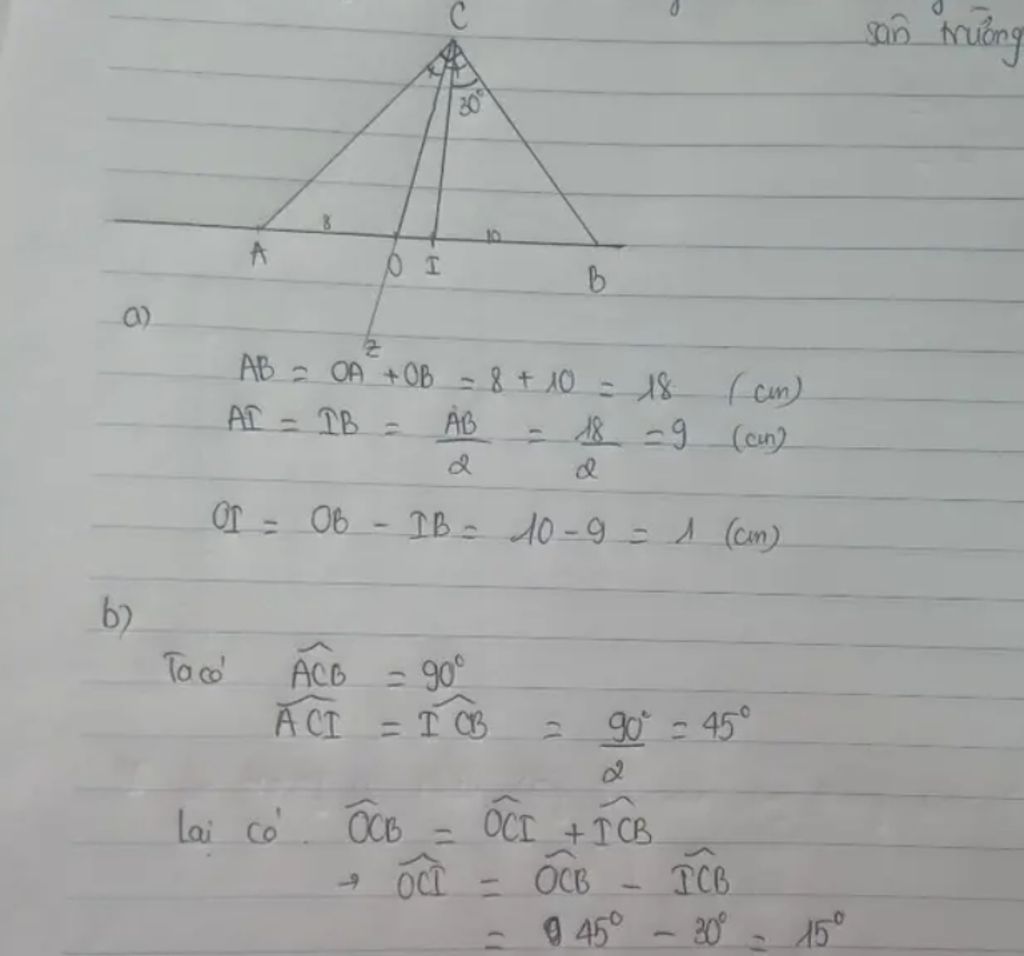 sân trường
C
30°
8
10
A
O I
B
z
a)
AB = OA + OB = 8 + 10 = 18 (cm)
AI = IB = AB/2 = 18/2 = 9 (cm)
OI = OB - IB = 10 - 9 = 1 (cm)
b)
Ta có ACB = 90°
ACI = ICB = 90°/2 = 45°
Lại có OCB = OCI + ICB
→ OCI = OCB - ICB
= 45° - 30° = 15°